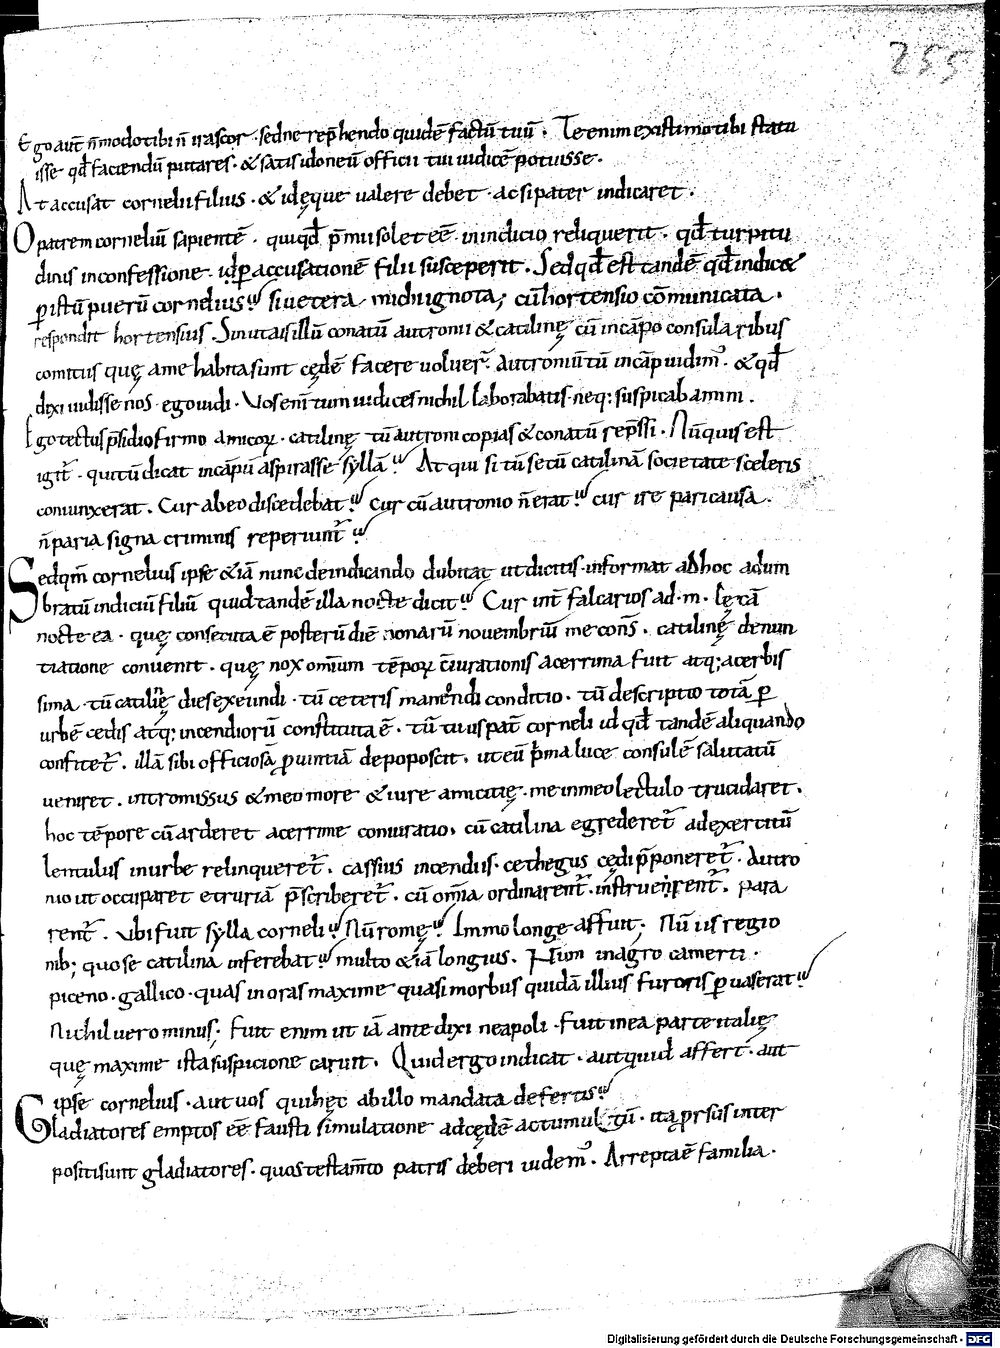 255
Ego aut̄ n̄ modo tibi n̄ irascor · sed ne rep̄hendo quidē factū tuū · Te enim existimo tibi statu
isse qđ faciendū putares · & satis idoneū officii tui iudicē potuisse ·
At accusat cornelii filius · & idęque ualere debet · ac si pater indicaret ·
O patrem corneliū sapientē · qui qđ p̄mii solet eē in indicio reliquerit · qđ turpitu
dinis in confessione · id ꝑ accusationē filii susceperit · Sed qđ est tandē qđ indic&
ꝑ istū puerū cornelius si uetera michi ignota; cū hortensio cōmunicata ·
respondit hortensius · Sin ut ais illū conatū autronii & catilinę cū in cāpo consularibus
comitiis quę a me habita sunt cędē facere uoluer̄ · autroniū tū in cāp uidim᷒ · & qđ
dixi uidisse nos · ego uidi · Vos enī tum iudices nichil laborabatis · neq: suspicabamini ·
Ego tectus p̄sidio firmo amicoꝝ · catilinę tū autronii copias & conatū rep̄ssi · Nū quis est
igit̄ · qui tū dicat in cāpū aspirasse syllā At qui si tū se cū catilinā societate sceleris
coniunxerat · Cur ab eo discedebat Cur cū autronio n̄ erat cur ire pari causa ·
n̄ paria signa criminis reperiunt̄
Sed qm̄ cornelius ipse & iā nunc de indicando dubitat ut dicitis · informat ad hoc adum
bratū indiciū filiū quid tandē illa nocte dicit Cur int̄ falcarios ad · m · lęcā
nocte ea · quę consecuta ē posterū diē nonarū nouembriū me cons̄ · catilinę denun
tiatione conuenit · quę nox omīum tēpoꝝ c̄iurationis acerrima fuit atq; acerbis
sima · tū catilinę dies exeundi · tū ceteris manendi conditio · tū descriptio totā ꝑ
urbē cedis atq: incendiorū constituta ē · tū tuus pat̄ corneli id qđ tandē aliquando
confitet̄ · illā sibi officiosā ꝓuintiā depoposcit · ut eū p̄ma luce consulē salutatū
ueniret · intromissus & meo more & iure amicitię · me in meo lectulo trucidaret ·
hoc tēpore cū arderet acerrime coniuratio · cū catilina egrederet̄ ad exercitū
lentulus in urbe relinqueret̄ · cassius incendiis · cethegus cędi p̄poneret̄ · Autro
nio ut occuparet etruriā p̄scriberet̄ · cū om̄ia ordinarent̄ · instruerent̄ · para
rent̄ · Vbi fuit sylla corneli Nū romę Immo longe affuit; Nū iis regio
nib; quo se catilina inferebat multo & iā longius · Num in agro camerti ·
piceno · gallico · quas in oras maxime quasi morbus quidā illius furoris ꝑuaserat
Nichil uero minus; Fuit enim ut iā ante dixi neapoli · Fuit in ea parte italię
quę maxime ista suspicione caruit · Quid ergo indicat · aut quid affert · aut
ipse cornelius · aut uos qui hęc ab illo mandata defertis
Gladiatores emptos eē fausti simulatione ad cędē ac tumultū · ita ꝓrsus inter
positi sunt gladiatores · quos testam̄to patris deberi uidem᷒ · Arrepta ē familia ·
Digitalisierung gefördert durch die Deutsche Forschungsgemeinschaft - DFG